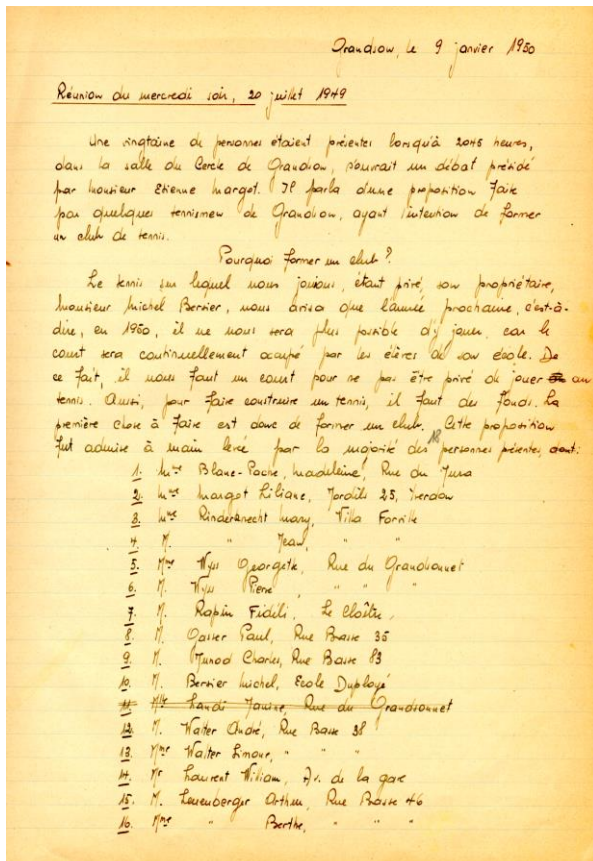 Grandson, le 9 janvier 1950
Réunion du mercredi soir, 20 juillet 1949
Une vingtaine de personnes étaient présentes lorsqu'à 2045 heures,
dans la salle du Cercle de Grandson, s'ouvrait un débat présidé
par Monsieur Etienne Margot. Il parla d'une proposition faite
par quelques tennismen de Grandson, ayant l'intention de former
un club de tennis.
Pourquoi former un club ?
Le tennis sur lequel nous jouions, étant privé, son propriétaire,
Monsieur Michel Bersier, nous avisa que l'année prochaine, c'est-à-
dire, en 1950, il ne nous sera plus possible d'y jouer, car le
court sera continuellement occupé par les élèves de son école. De
ce fait, il nous faut un court pour ne pas être privé de jouer au
tennis. Aussi, pour faire construire un tennis, il faut des fonds. La
première chose à faire est donc de former un club. Cette proposition
fut admise à main levée par la majorité des 18 personnes présentes, dont:
1. Mme Blanc-Poche, Madeleine, Rue du Jura
2. Mme Margot Liliane, Jordils 25, Yverdon
3. Mme Rinderknecht Mary, Villa
4. M. " Jean, " "
5. Mme Wyss Georgette, Rue du Grandsonnet
6. M. Wyss Pierre, " " "
7. M. Rapin Fidéli, Le Cloître,
8. M. Gasser Paul, Rue Basse 35
9. M. Junod Charles, Rue Basse 83
10. M. Bersier Michel, Ecole Duployé
11. Mlle Landi Janine, Rue du Grandsonnet
12. M. Walter André, Rue Basse 38
13. Mme Walter Simone, " " "
14. Mr Laurent William, Av. de la gare
15. M. Leuenberger Arthur, Rue Basse 46
16. Mme " Berthe, " " "